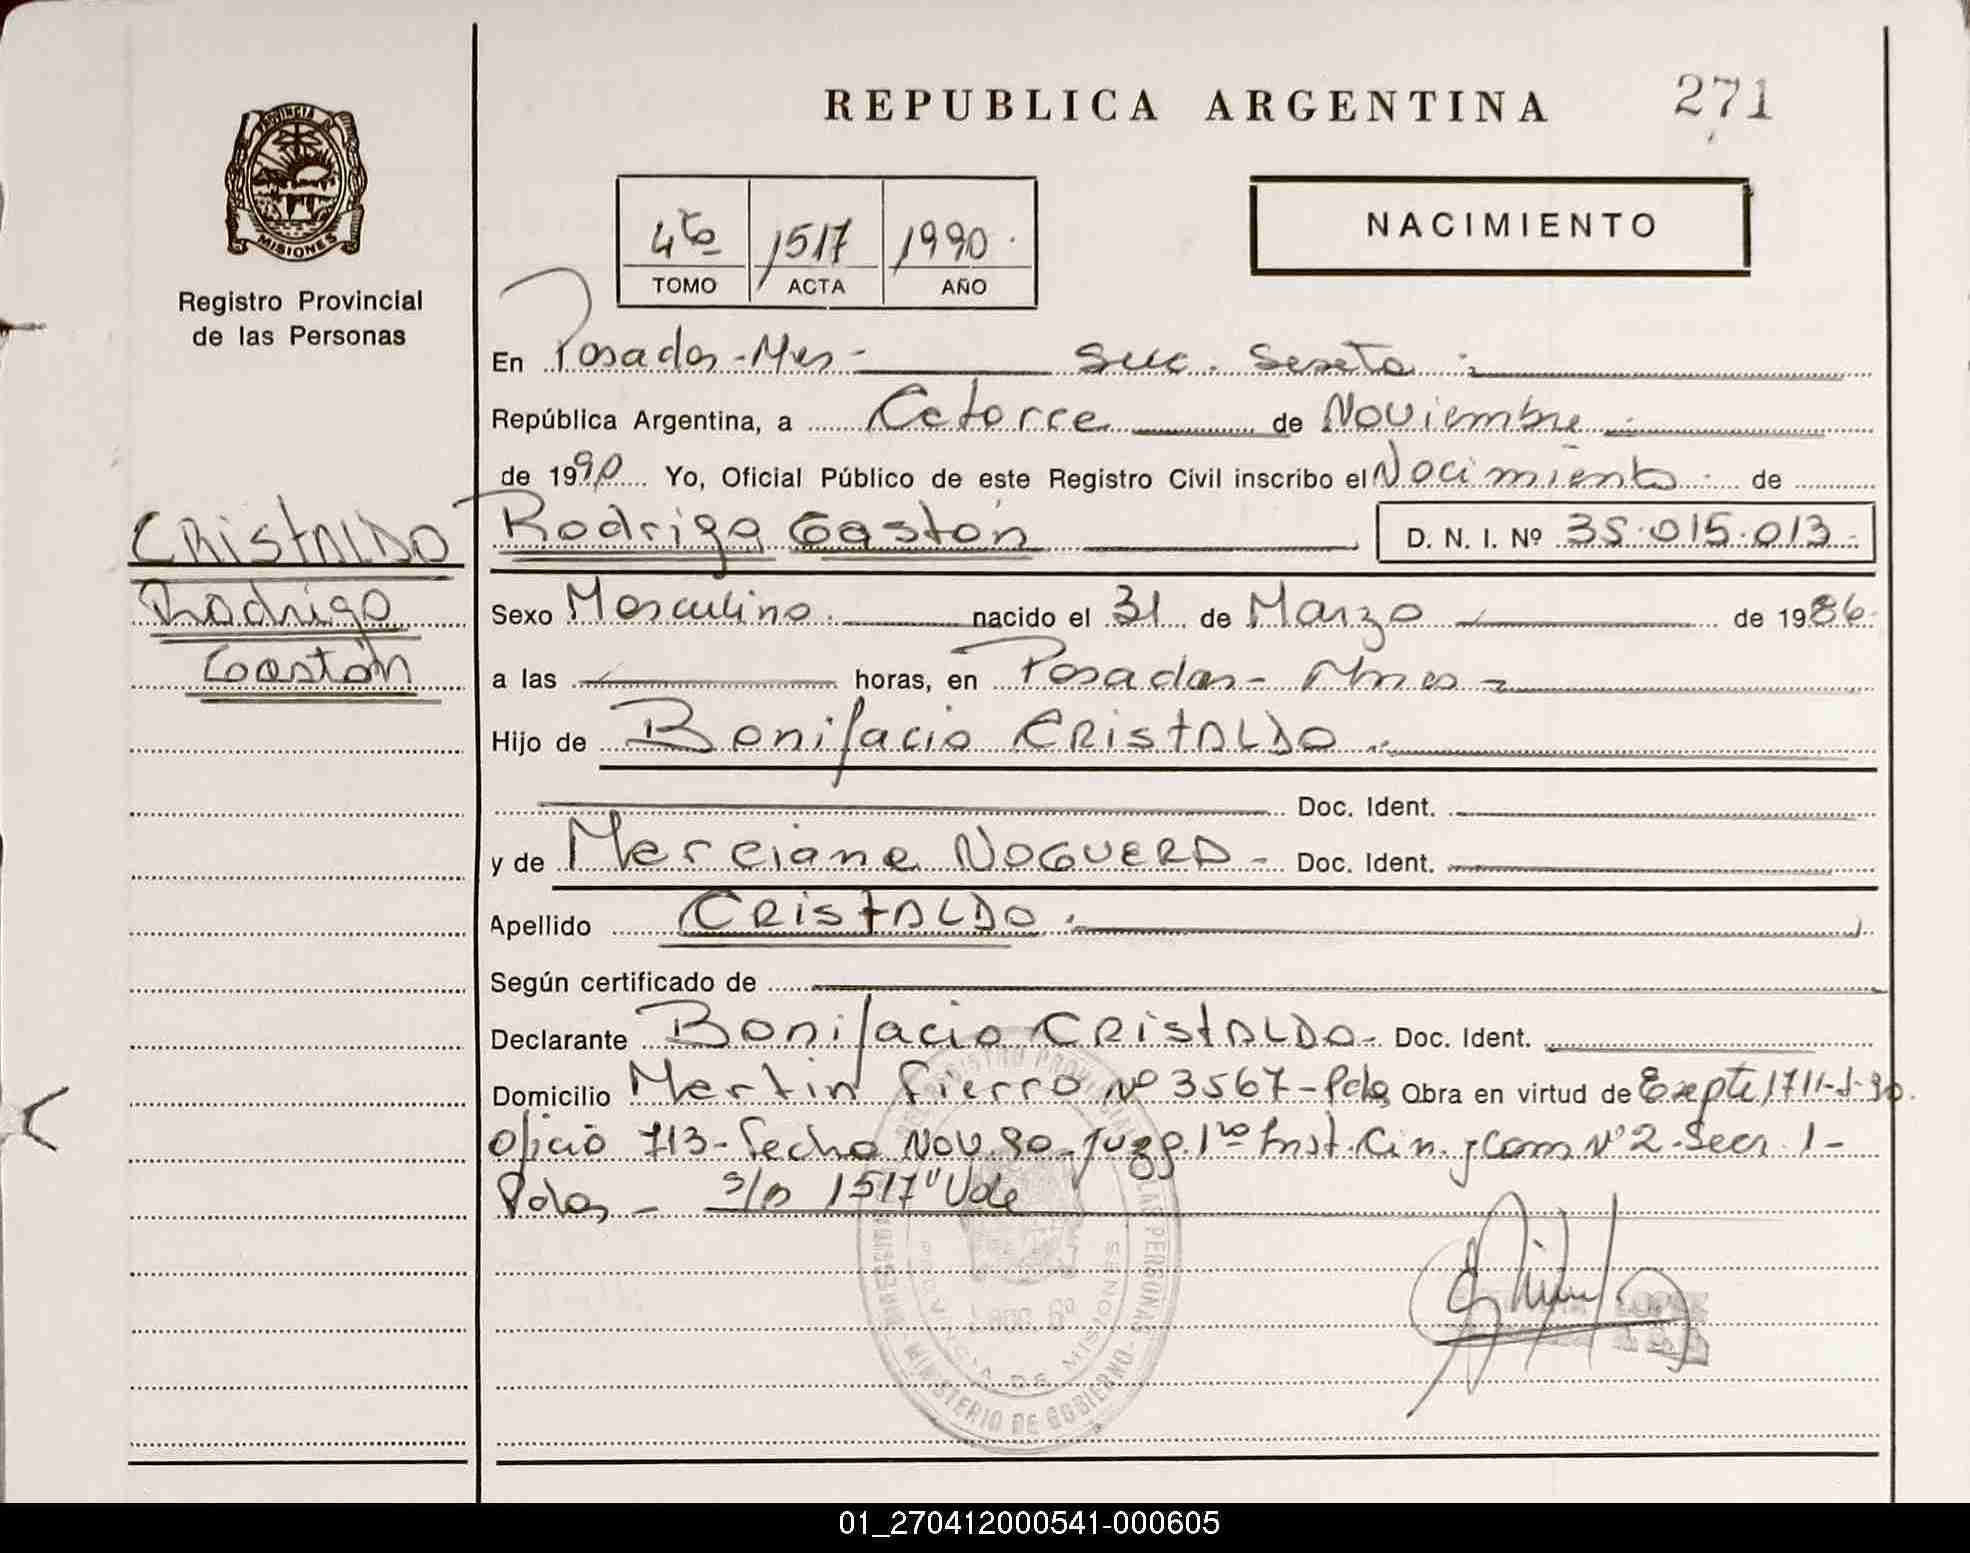 REPUBLICA ARGENTINA
271
PROVINCIA DE
MISIONES
Registro Provincial
de las Personas
4to 1517 1990
TOMO ACTA AÑO
NACIMIENTO
En Posadas-Mnes- Suc. Sexta
República Argentina, a Catorce de Noviembre
de 1990 Yo, Oficial Público de este Registro Civil inscribo el Nacimiento de
CRISTALDO
Rodrigo
Gastón
Rodrigo Gastón D. N. I. Nº 35.015.013-
Sexo Masculino nacido el 31 de Marzo de 1986
a las horas, en Posadas-Mnes-
Hijo de Bonifacio CRISTALDO
Doc. Ident.
y de Merciana NOGUERA- Doc. Ident.
Apellido CRISTALDO.
Según certificado de
Declarante Bonifacio CRISTALDO- Doc. Ident.
Domicilio Martin Fierro Nº 3567-Pdas Obra en virtud de Expte 1711-
Oficio 713-Fecha Nov.90-Juzg.1ra Inst.Civ.y Com Nº2-Secr.1-
Pdas, - s/n 1517" Vale
REGISTRO PROVINCIAL DE LAS PERSONAS
MINISTERIO DE GOBIERNO
PROVINCIA DE MISIONES
LOPEZ
01_270412000541-000605